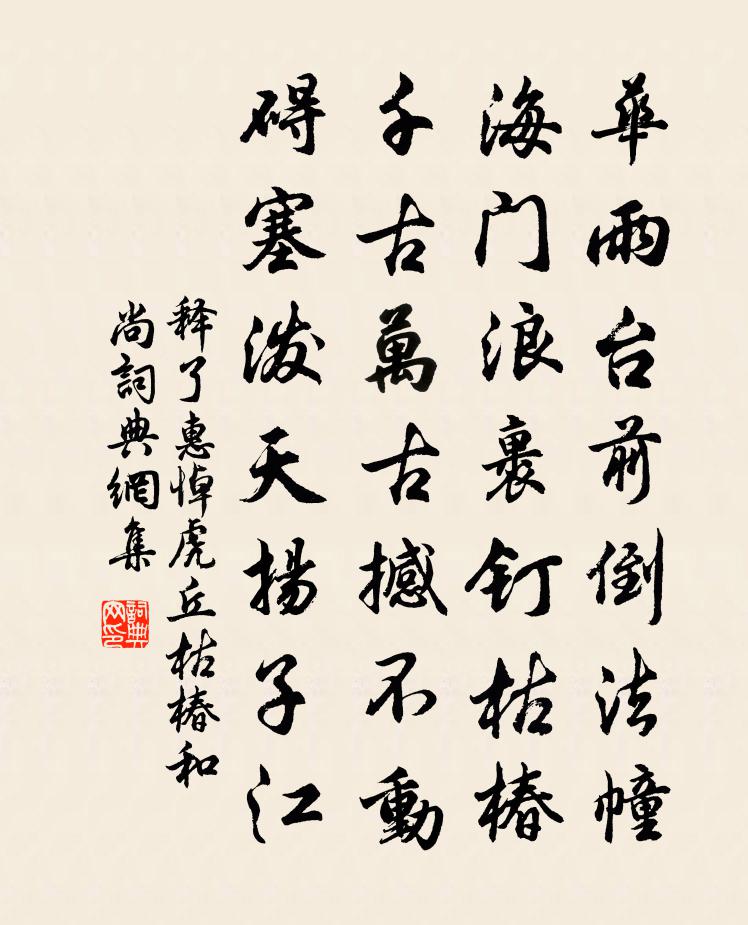 華雨台前倒法幢
海门浪裹钉枯椿
千古萬古撼不動
碍塞泼天揚子江
释了惠悼虎丘枯椿和
尚詞典網集
詞典
网印